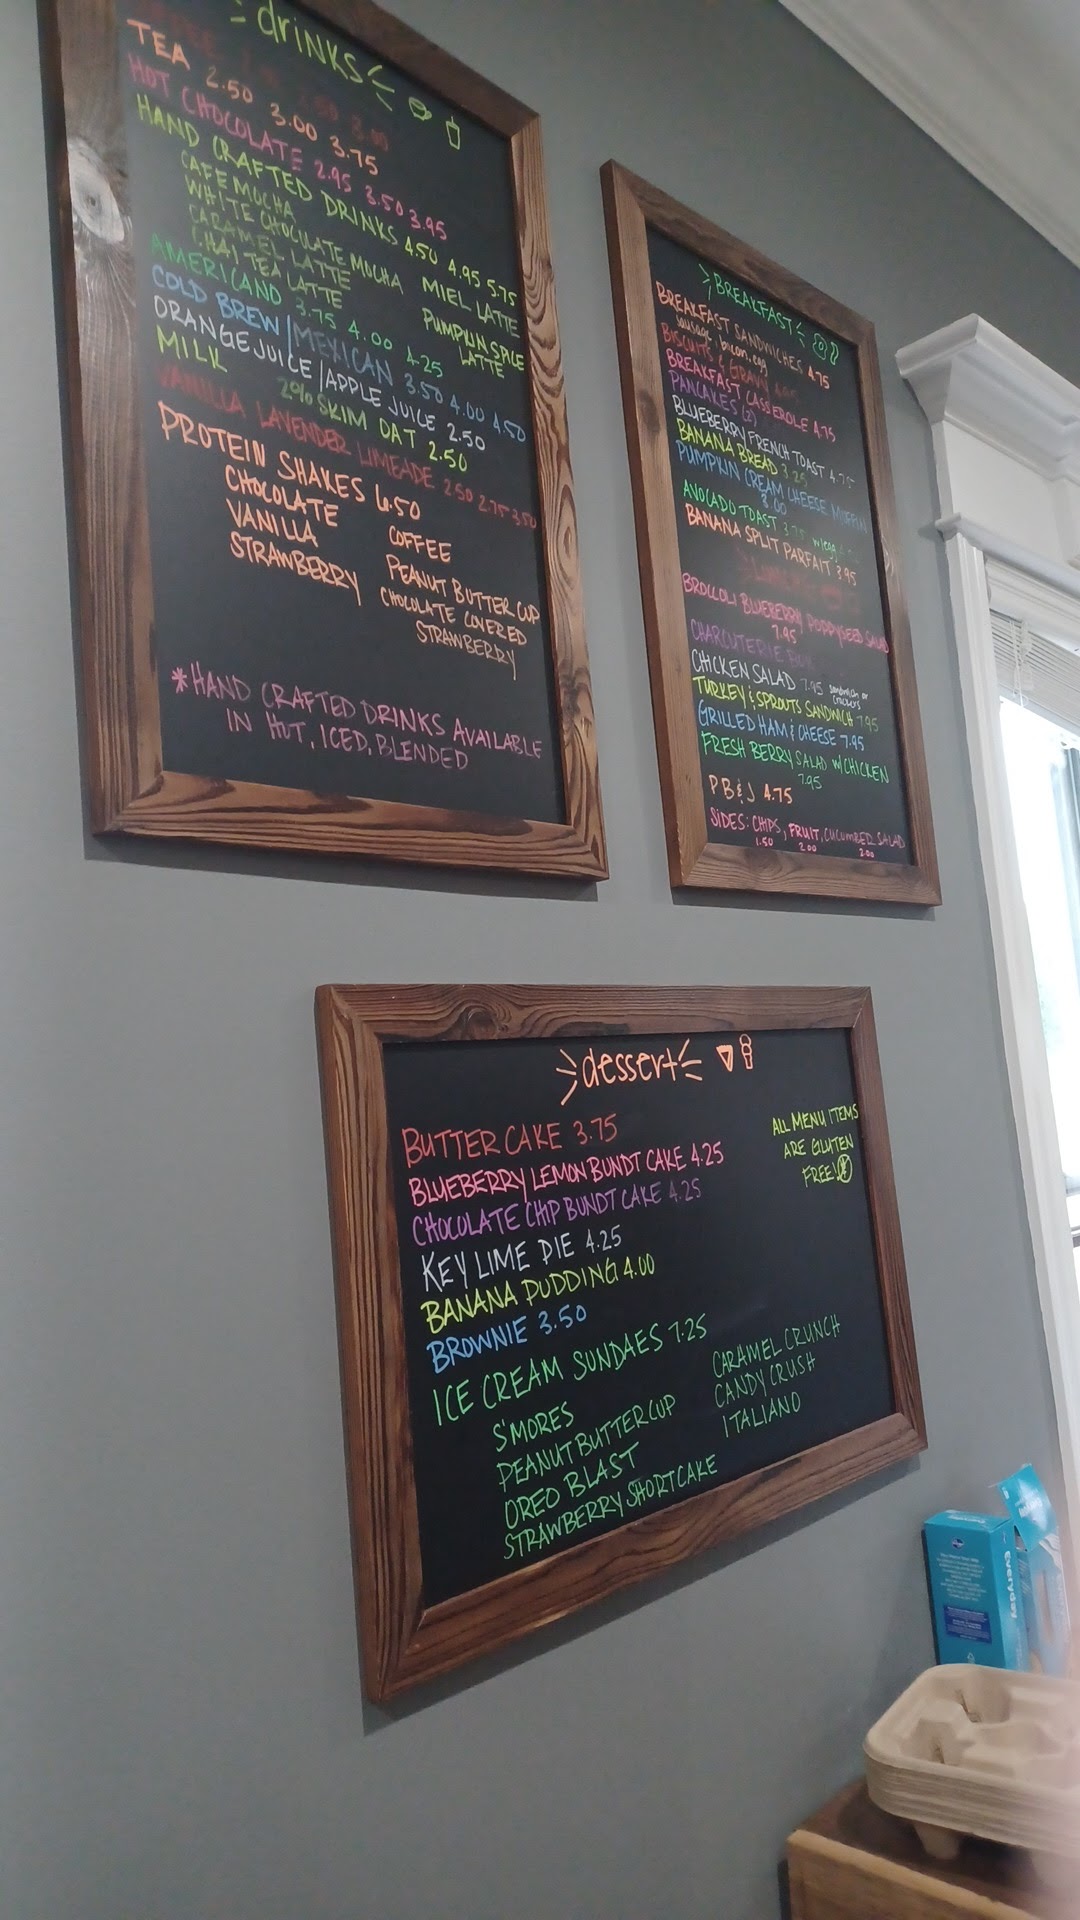 drinks
TEA 2.50 3.00 3.75
HOT CHOCOLATE 2.95 3.50 3.95
HAND CRAFTED DRINKS 4.50 4.95 5.75
CAFE MOCHA
WHITE CHOCOLATE MOCHA
CARAMEL LATTE
CHAI TEA LATTE
MIEL LATTE
PUMPKIN SPICE
LATTE
AMERICANO 3.75 4.00 4.25
COLD BREW/MEXICAN 3.50 4.00 4.50
ORANGE JUICE/APPLE JUICE 2.50
MILK
2% SKIM OAT 2.50
VANILLA LAVENDER LIMEADE 2.50 2.75 3.50
PROTEIN SHAKES 6.50
CHOCOLATE
VANILLA
STRAWBERRY
COFFEE
PEANUT BUTTER CUP
CHOCOLATE COVERED
STRAWBERRY
*HAND CRAFTED DRINKS AVAILABLE
IN HOT, ICED, BLENDED
BREAKFAST
BREAKFAST SANDWICHES 4.75
sausage, bacon, egg
BISCUITS & GRAVY
BREAKFAST CASSEROLE 4.75
PANCAKES (2)
BLUEBERRY FRENCH TOAST 4.75
BANANA BREAD 3.25
PUMPKIN CREAM CHEESE MUFFIN
3.00
AVOCADO TOAST 3.75 w/egg
BANANA SPLIT PARFAIT 3.95
BROCCOLI BLUEBERRY POPPYSEED SALAD
7.95
CHARCUTERIE BOX
CHICKEN SALAD 7.95 sandwich or
crackers
TURKEY & SPROUTS SANDWICH 7.95
GRILLED HAM & CHEESE 7.95
FRESH BERRY SALAD W/CHICKEN
7.95
PB&J 4.75
SIDES: CHIPS, FRUIT, CUCUMBER SALAD
1.50 2.00 2.00
dessert
BUTTER CAKE 3.75
BLUEBERRY LEMON BUNDT CAKE 4.25
CHOCOLATE CHIP BUNDT CAKE 4.25
KEY LIME PIE 4.25
BANANA PUDDING 4.00
BROWNIE 3.50
ICE CREAM SUNDAES 7.25
S'MORES
PEANUT BUTTER CUP
OREO BLAST
STRAWBERRY SHORTCAKE
CARAMEL CRUNCH
CANDY CRUSH
ITALIANO
ALL MENU ITEMS
ARE GLUTEN
FREE!
everyday